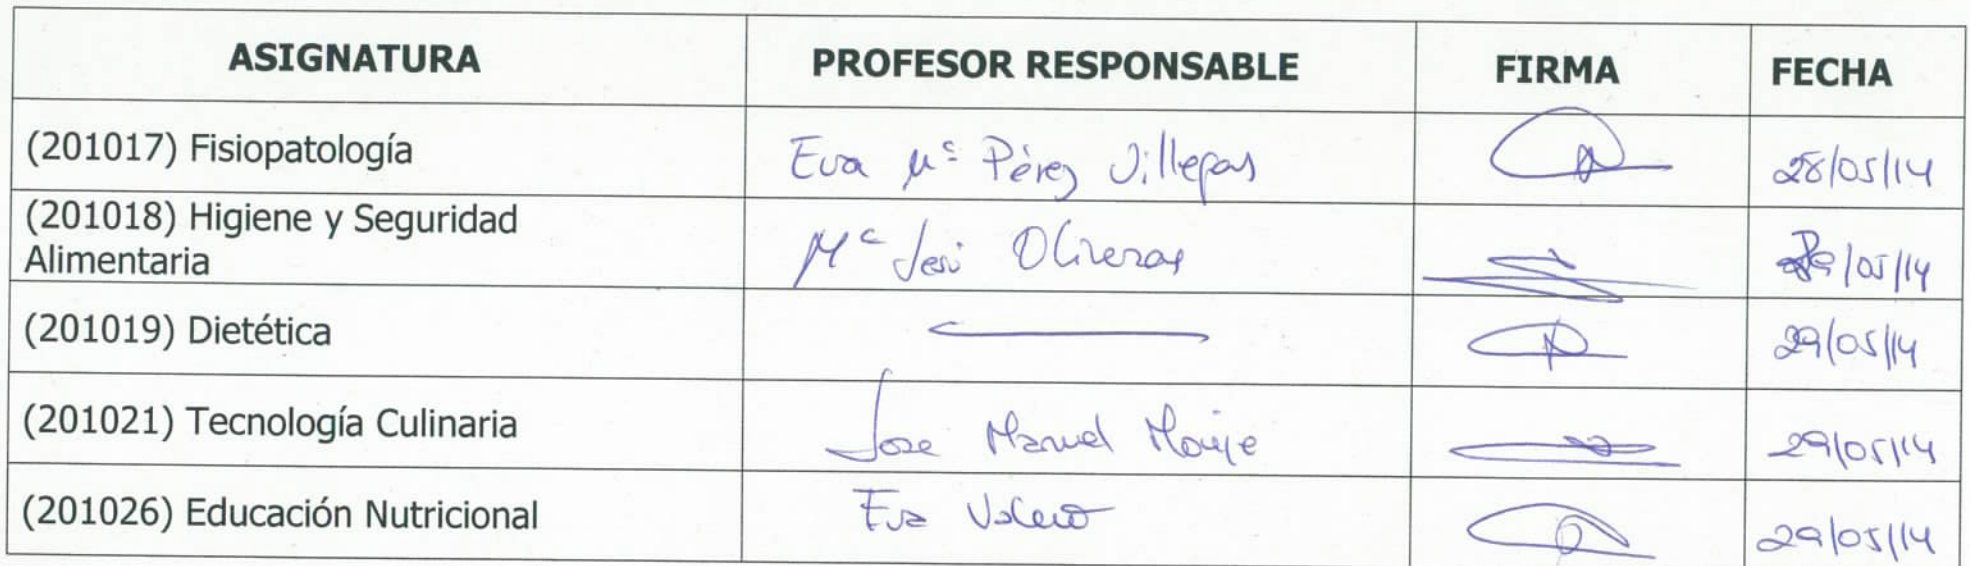 ASIGNATURA PROFESOR RESPONSABLE FIRMA FECHA
(201017) Fisiopatología Eva Mª Pérez Villegas 28/05/14
(201018) Higiene y Seguridad
Alimentaria Mª Jesús Oliveras /05/14
(201019) Dietética 29/05/14
(201021) Tecnología Culinaria Jose Manuel Monje 29/05/14
(201026) Educación Nutricional Eva Valero 29/05/14